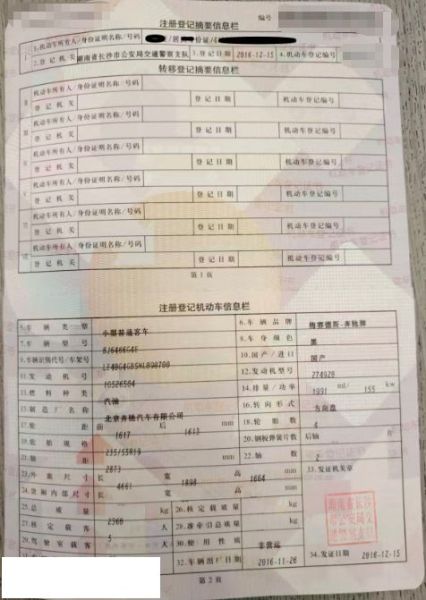 注册登记摘要信息栏 编号
1.机动车所有人/身份证明名称/号码
2.登记机关 湖南省长沙市公安局交通警察支队 3.登记日期 2016-12-15 4.机动车登记编号
转移登记摘要信息栏
机动车所有人/身份证明名称/号码
登记机关 登记日期 机动车登记编号
机动车所有人/身份证明名称/号码
登记机关 登记日期 机动车登记编号
机动车所有人/身份证明名称/号码
登记机关 登记日期 机动车登记编号
机动车所有人/身份证明名称/号码
登记机关 登记日期 机动车登记编号
机动车所有人/身份证明名称/号码
登记机关 登记日期 机动车登记编号
机动车所有人/身份证明名称/号码
登记机关 登记日期 机动车登记编号
第1页
注册登记机动车信息栏
5.车辆类型 小型普通客车 6.车辆品牌 梅赛德斯-奔驰牌
7.车辆型号 8.车身颜色 黑
9.车辆识别代号/车架号 10.国产/进口 国产
11.发动机号 12.发动机型号 274920
13.燃料种类 汽油 14.排量/功率 1991 ml/ 155 kW
15.制造厂名称 北京奔驰汽车有限公司 16.转向形式 方向盘
17.轮距 前 1617 后 1613 mm 18.轮胎数 4
19.轮胎规格 235/55R19 20.钢板弹簧片数 后轴
21.轴距 2873 mm 22.轴数 2
23.外廓尺寸 长 4661 宽 1898 高 1664 mm 33.发证机关章
24.货厢内部尺寸 长 宽 高 mm
25.总质量 kg 26.核定载质量 kg
27.核定载客 5 人 28.准牵引总质量 kg
29.驾驶室载客 人 30.使用性质 非营运
32.车辆出厂日期 2016-11-26 34.发证日期 2016-12-15
第2页